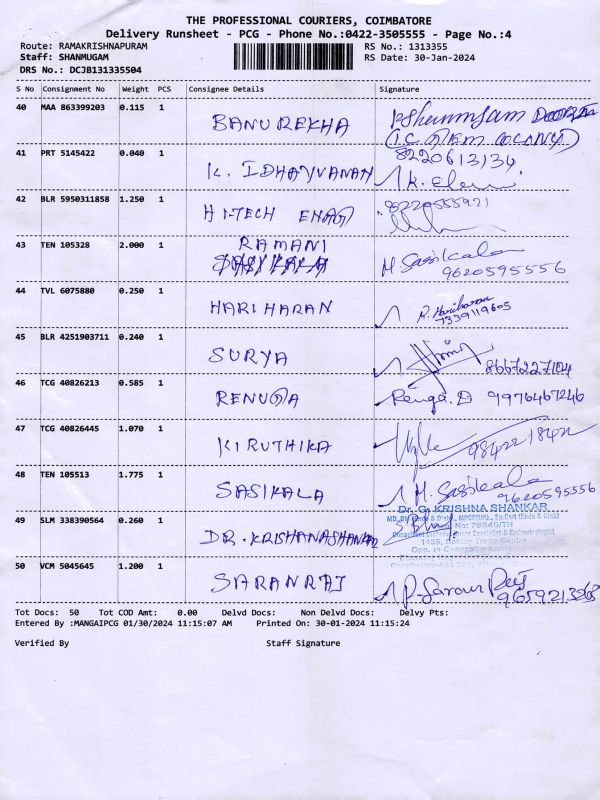 THE PROFESSIONAL COURIERS, COIMBATORE
Delivery Runsheet - PCG - Phone No.:0422-3505555 - Page No.:4
Route: RAMAKRISHNAPURAM RS No.: 1313355
Staff: SHANMUGAM RS Date: 30-Jan-2024
DRS No.: DCJB131335504
S No Consignment No Weight PCS Consignee Details Signature
40 MAA 863399203 0.115 1 BANUREKHA
41 PRT 5145422 0.040 1 K. IDHAYVANAN 8220613134
42 BLR 5950311858 1.250 1 HI-TECH ENGG 8220555921
43 TEN 105328 2.000 1 RAMANI M. Sasikala
9620595556
44 TVL 6075880 0.250 1 HARIHARAN R. Hariharan
7339119605
45 BLR 4251903711 0.240 1 SURYA 8667227104
46 TCG 40826213 0.585 1 RENUGA Renga.D 9976467246
47 TCG 40826445 1.070 1 KIRUTHIKA 9842218422
48 TEN 105513 1.775 1 SASIKALA M. Sasikala
9620595556
Dr. G. KRISHNA SHANKAR
49 SLM 338390564 0.260 1 DR. KRISHANASHANKAR
50 VCM 5045645 1.200 1 SARANRAJ 9659213268
Tot Docs: 50 Tot COD Amt: 0.00 Delvd Docs: Non Delvd Docs: Delvy Pts:
Entered By :MANGAIPCG 01/30/2024 11:15:07 AM Printed On: 30-01-2024 11:15:24
Verified By Staff Signature